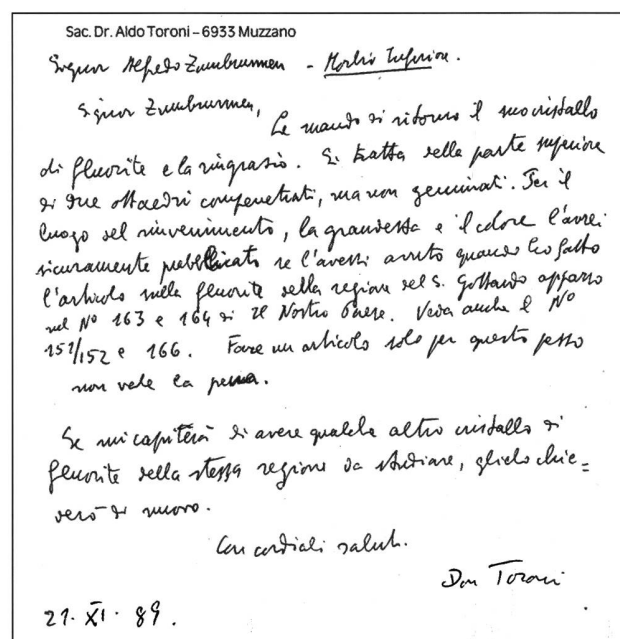 Sac. Dr. Aldo Toroni – 6933 Muzzano
Signor Alfedo Zumbrunnen - Morbio Inferiore.
Signor Zumbrunnen,
Le mando di ritorno il suo cristallo
di fluorite e la ringrazio. Si tratta della parte superiore
di due ottaedri compenetrati, ma non geminati. Per il
luogo del rinvenimento, la grandezza e il colore l'avrei
sicuramente pubblicato se l'avessi avuto quando ho fatto
l'articolo sulla fluorite della regione del S. Gottardo apparso
nel Nº 163 e 164 di Il Nostro Paese. Veda anche il Nº
151/152 e 166. Fare un articolo solo per questo pezzo
non vale la pena.
Se mi capiterà di avere qualche altro cristallo di
fluorite della stessa regione da studiare, glielo chie=
derò di nuovo.
Con cordiali saluti.
Don Toroni
21. XI. 89.